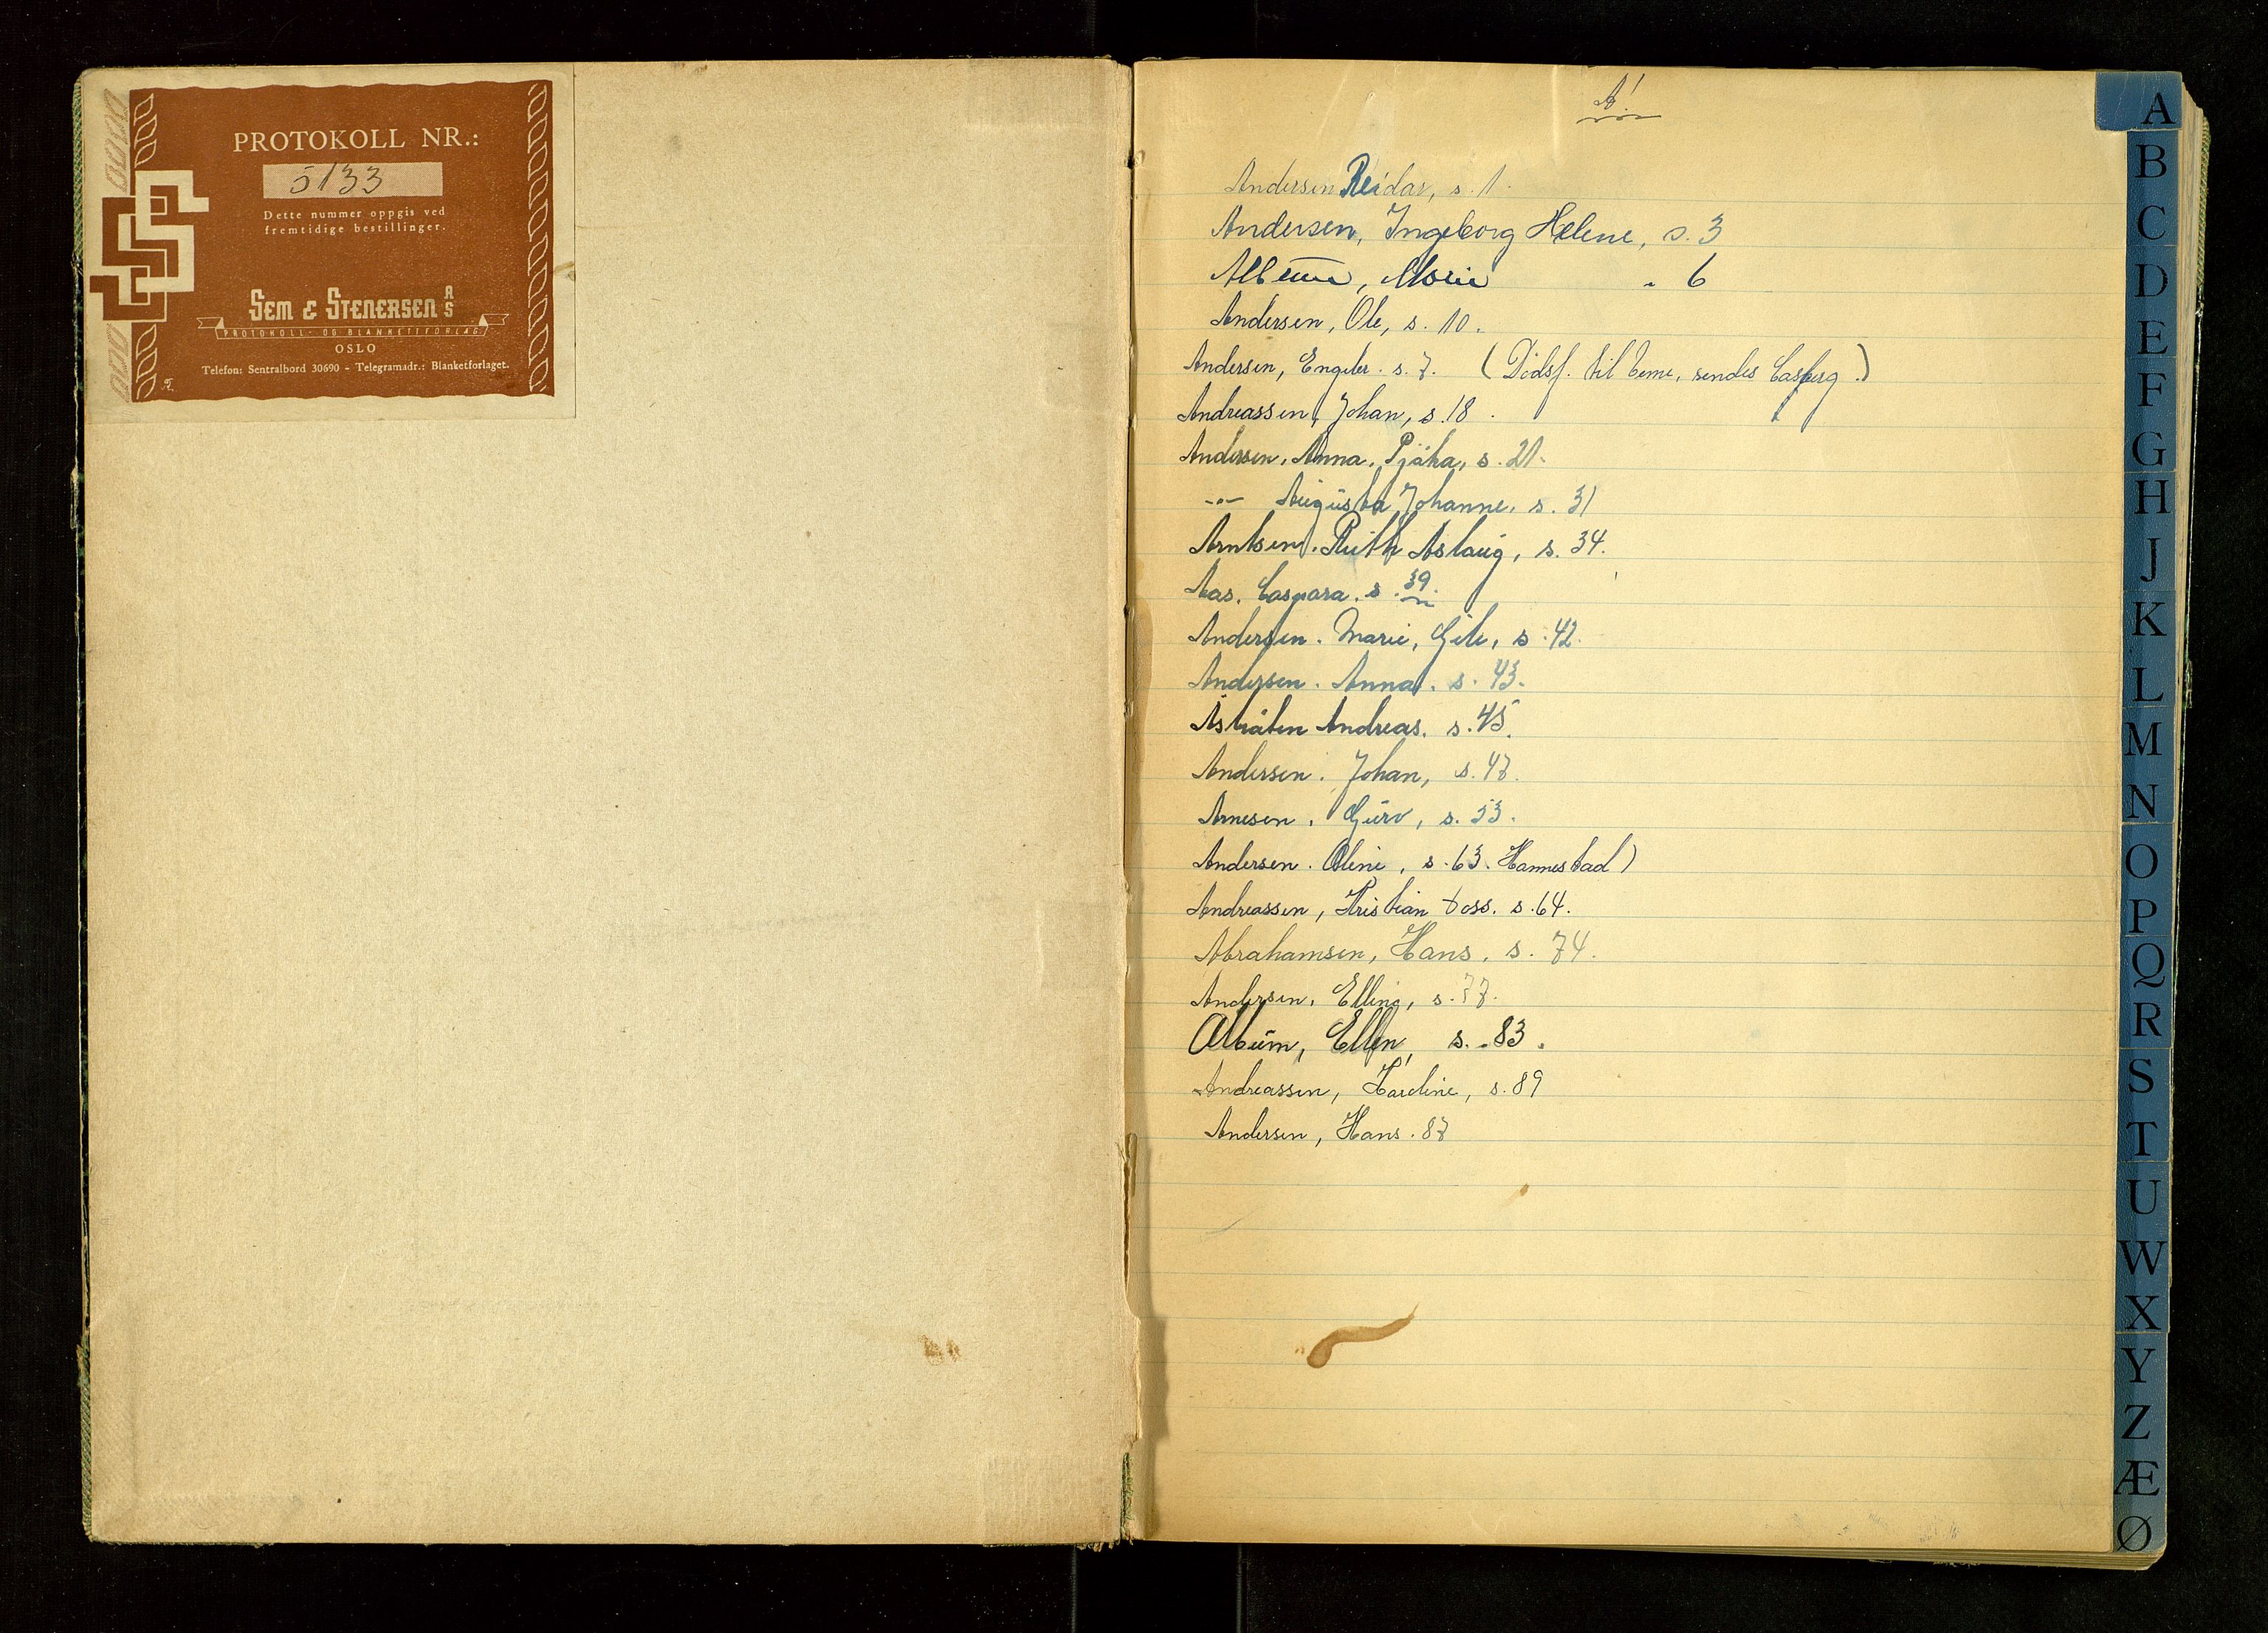 PROTOKOLL NR.:
5133
Dette nummer oppgis ved
fremtidige bestillinger.
SEM & STENERSEN A/S
PROTOKOLL- OG BLANKETTFORLAG
OSLO
Telefon: Sentralbord 30690 - Telegramadr.: Blanketforlaget.
A!
Andersen Reidar, s. 1.
Andersen, Ingeborg Helene, s. 3
Album, Marie " 6
Andersen, Ole, s. 10.
Andersen, Engebr. s. 7. (Dødsf. til sendes
Andreassen, Johan, s. 18.
Andersen, Anna, s. 21.
-"- Augusta Johanne, s. 31
Arntsen, Ruth Aslaug, s. 34.
Aas. Caspara. s. 39.
Andersen. Marie, s. 42.
Andersen. Anna. s. 43.
Andreas. s. 45.
Andersen. Johan, s. 47.
Arnesen, Guro, s. 53.
Andersen. Oline, s. 63. Hannestad)
Andreassen, Kristian Foss. s. 64.
Abrahamsen, Hans, s. 74.
Andersen, Elling, s. 77.
Album, Ellen, s. 83.
Andreassen, Karoline, s. 89
Andersen, Hans. 87
A
B
C
D
E
F
G
H
J
K
L
M
N
O
P
Q
R
S
T
U
W
X
Y
Z
Æ
Ø